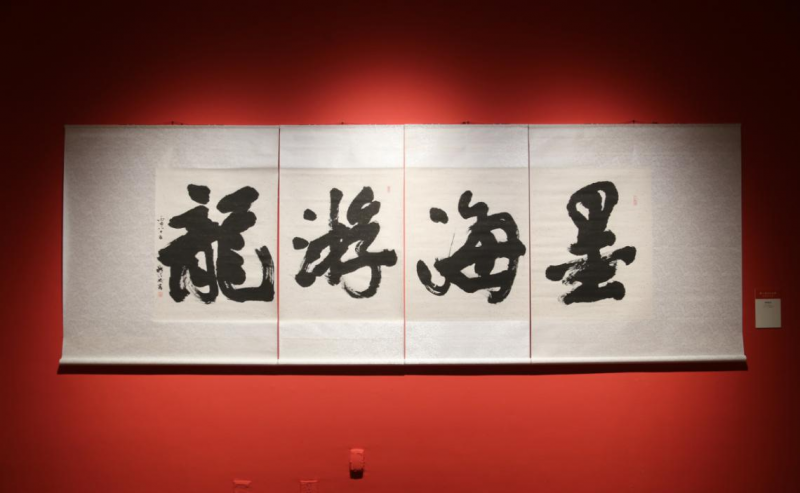 墨海游龍